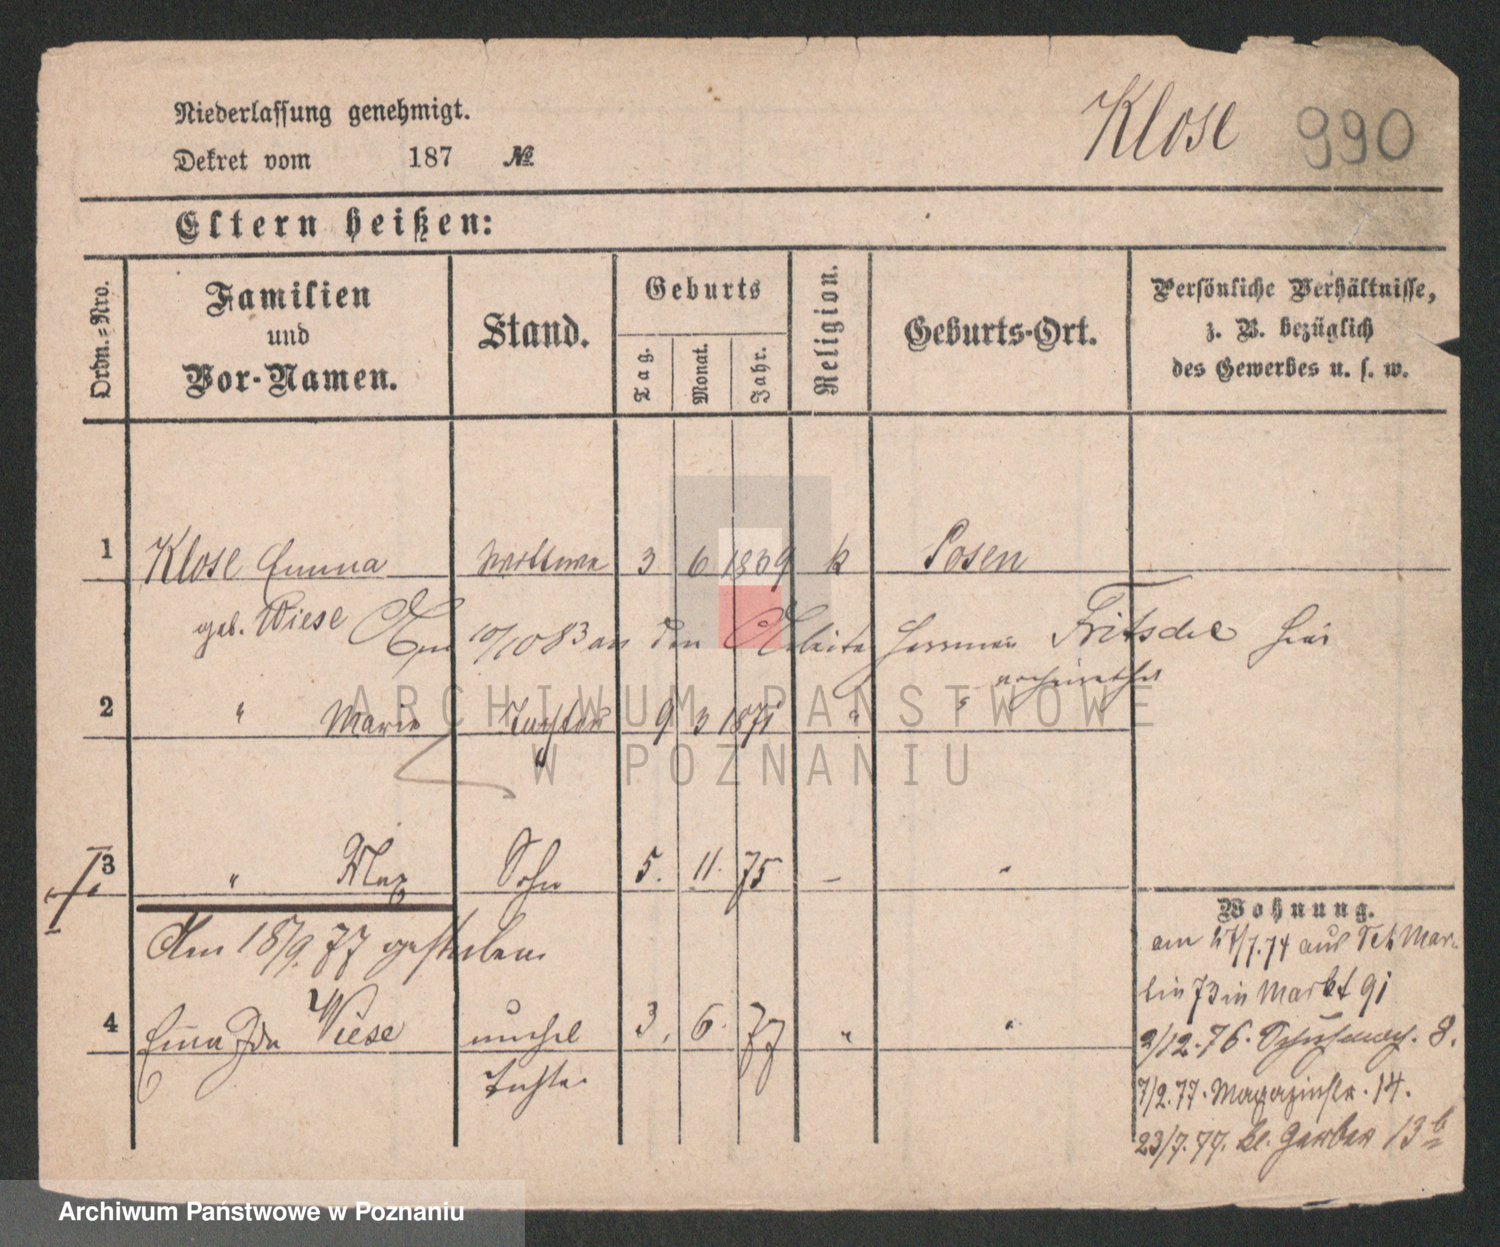 Niederlassung genehmigt.
Klose 990
Dekret vom 187 №
Eltern heißen:
Ordn.-Nro.
Familien
und
Vor-Namen.
Stand.
Geburts
Tag.
Monat.
Jahr.
Religion.
Geburts-Ort.
Persönliche Verhältnisse,
z. B. bezüglich
des Gewerbes u. s. w.
1 Klose Emma Wittwe 3 6 1839 k Posen
geb. Wiese
10/10 83 an den Fritsche hier
verheirathet
2 " Marie Tochter 9 3 1871 " "
3 " Max Sohn 5. 11. 75 – "
Am 18/9. 77 gestorben
4 Ida Wiese unehel 3. 6. 77 " "
Tochter
Wohnung.
am 17/7.74 aus St. Mar-
tin 73 in Markt 91
3/12.76. Schuhmach. 8.
7/2.77. Magazinstr. 14.
23/7.77. kl. Gerber 13 b
ARCHIWUM PAŃSTWOWE
W POZNANIU
Archiwum Państwowe w Poznaniu